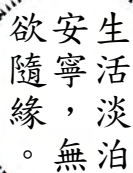 生活淡泊
安寧，無
欲隨緣。